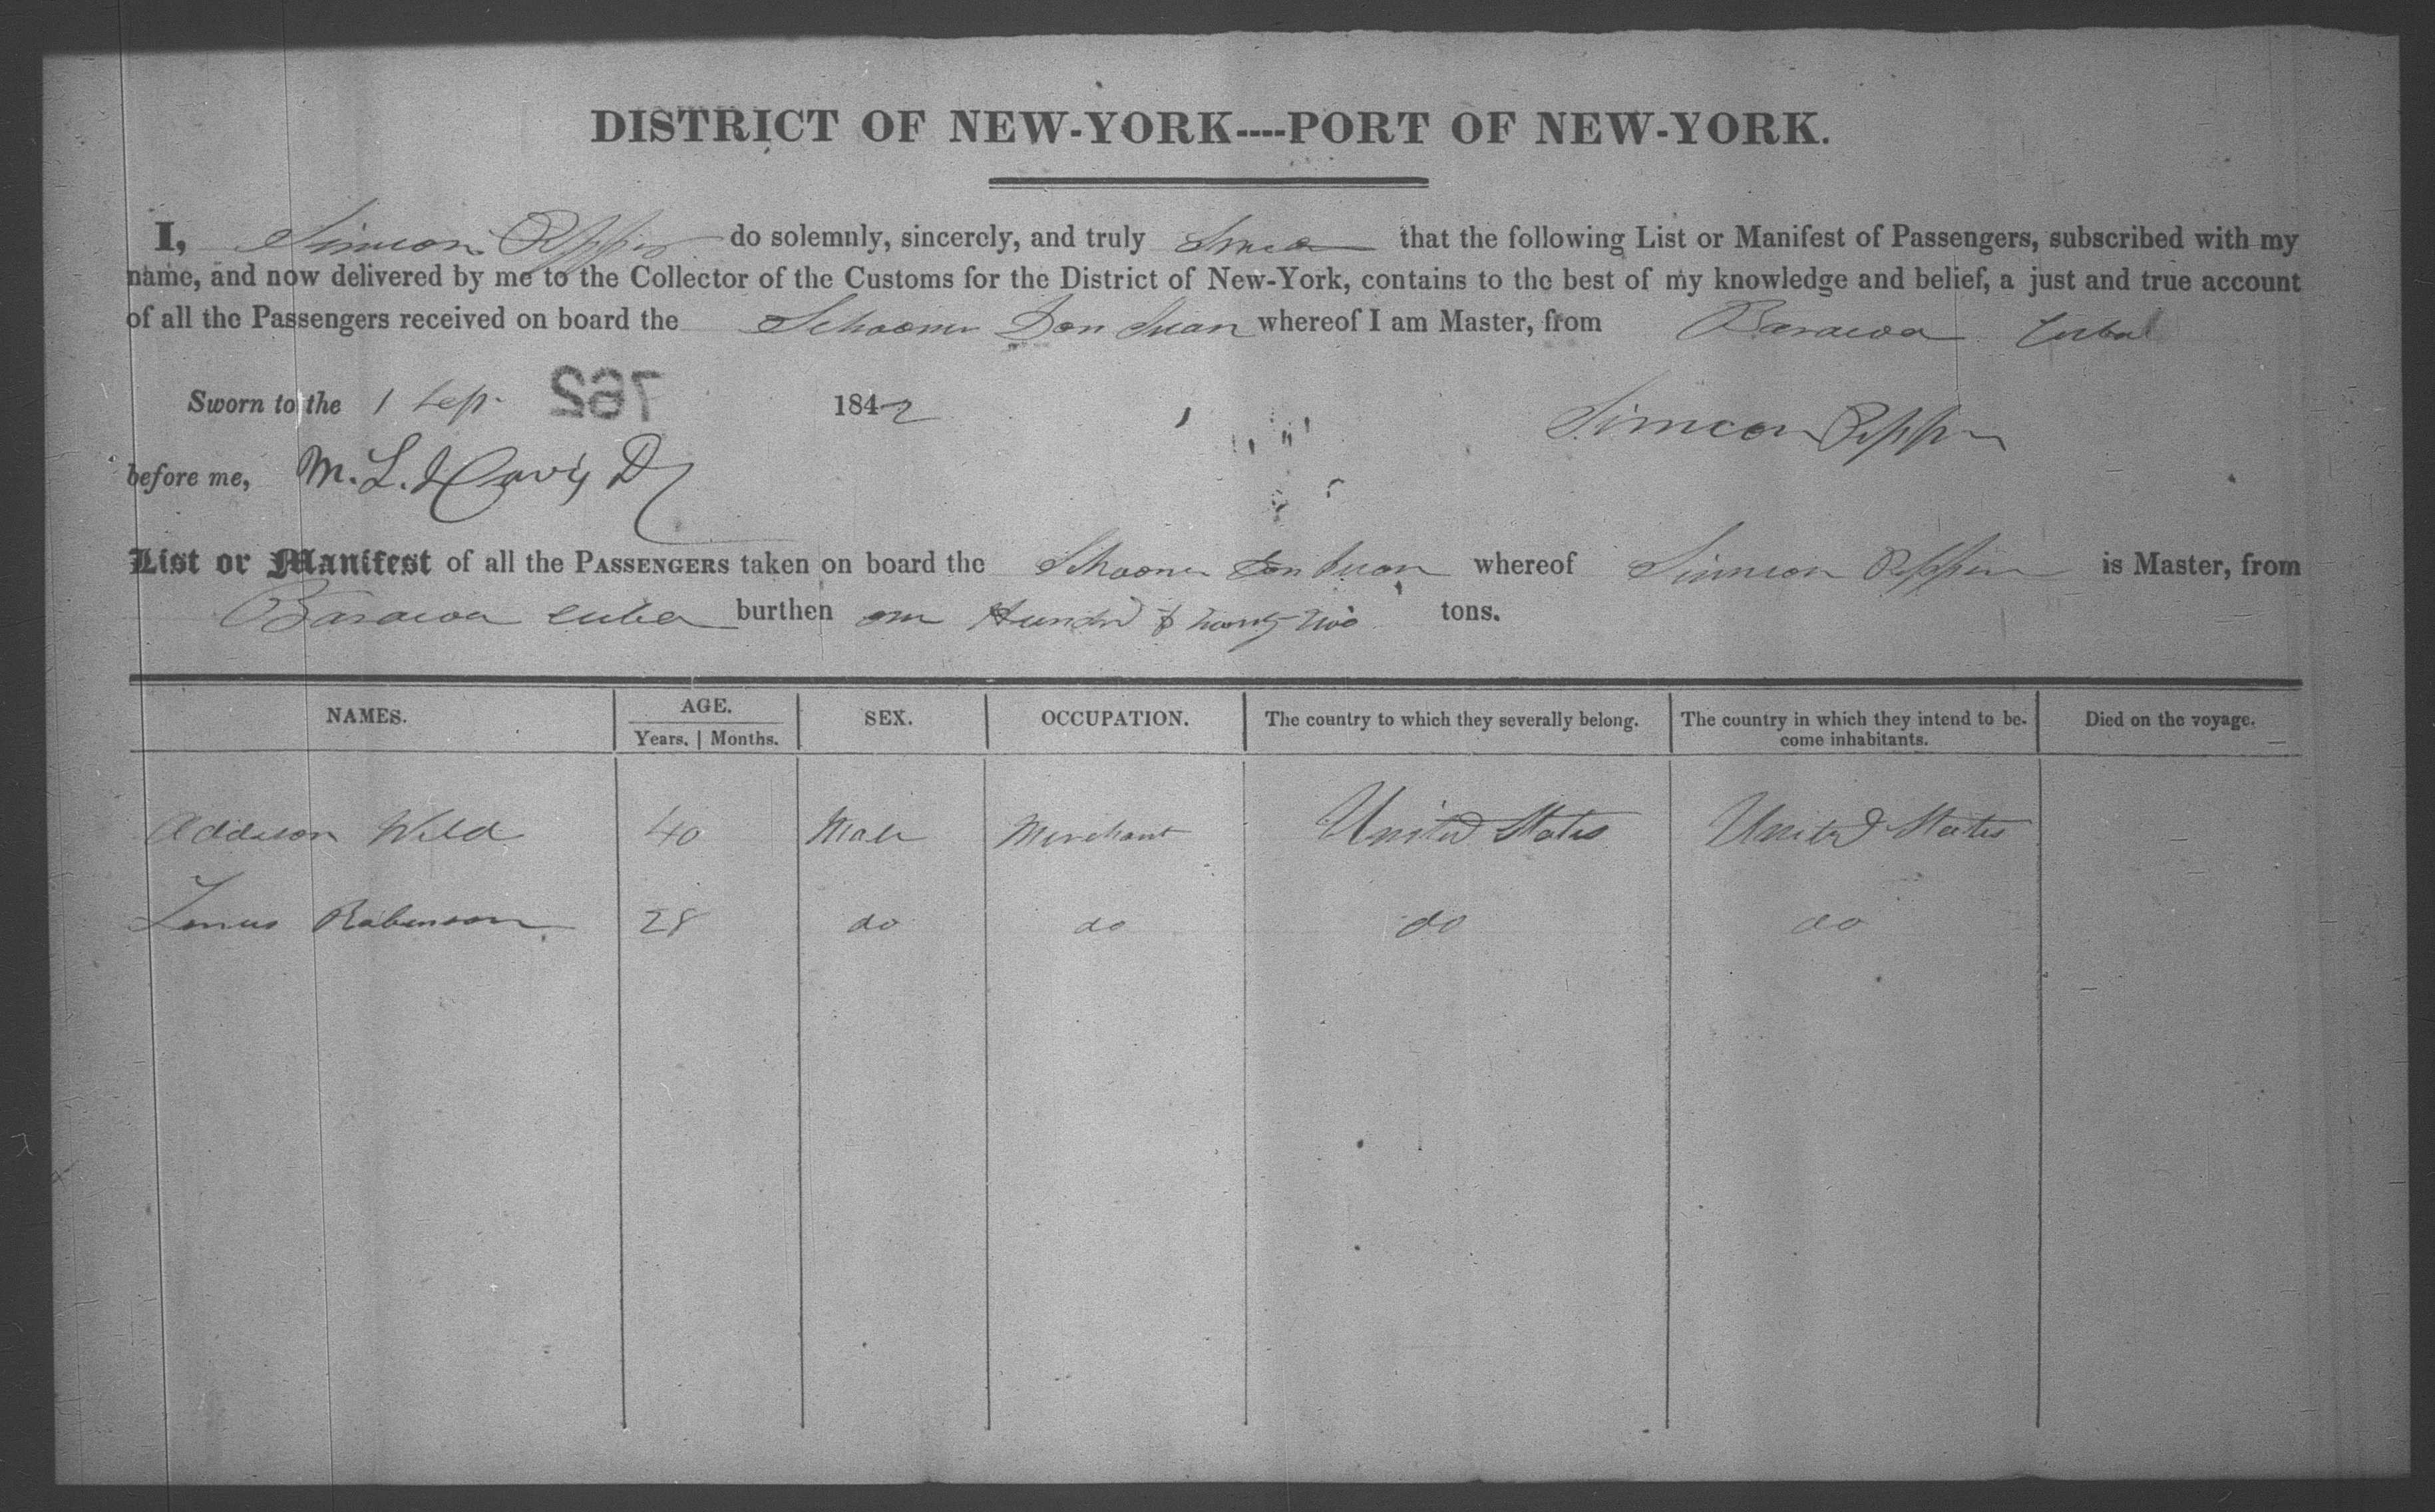 DISTRICT OF NEW-YORK----PORT OF NEW-YORK.
I, Simeon do solemnly, sincerely, and truly swear that the following List or Manifest of Passengers, subscribed with my
name, and now delivered by me to the Collector of the Customs for the District of New-York, contains to the best of my knowledge and belief, a just and true account
of all the Passengers received on board the Schooner Don Juan whereof I am Master, from Baracoa Cuba
Sworn to the 1 Sep. 762 1842
Simeon
before me, M. L. Davis D
List or Manifest of all the PASSENGERS taken on board the Schooner Don Juan whereof Simeon is Master, from
Baracoa Cuba burthen one Hundred & twenty two tons.
NAMES. AGE. SEX. OCCUPATION. The country to which they severally belong. The country in which they intend to be- Died on the voyage.
Years. | Months. come inhabitants.
Addison Wild 40 Male Merchant United States United States
Robinson 28 do do do do